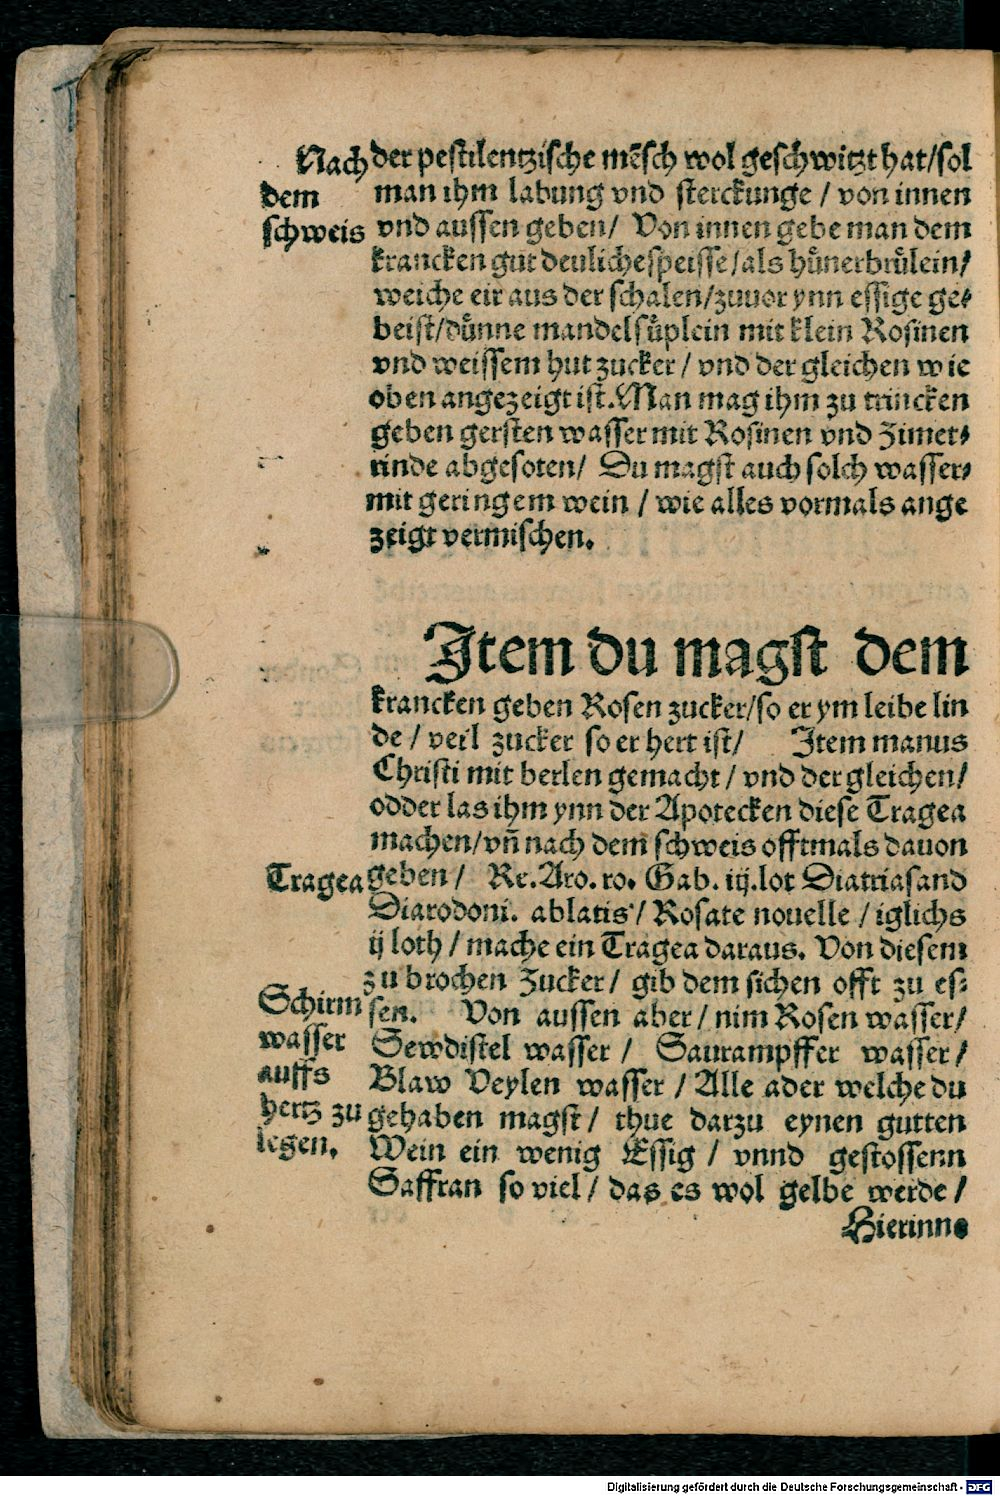 Nach
dem
schweis
der pestilentzische mẽsch wol geschwitzt hat/sol
man ihm labung vnd sterckunge / von innen
vnd aussen geben/ Von innen gebe man dem
krancken gut deulichespeisse/als hůnerbrůlein/
weiche eir aus der schalen/zuuor ynn essige ge⸗
beist/důnne mandelsůplein mit klein Rosinen
vnd weissem hut zucker / vnd der gleichen wie
oben angezeigt ist. Man mag ihm zu trincken
geben gersten wasser mit Rosinen vnd Zimet⸗
rinde abgesoten/ Du magst auch solch wasser⸗
mit geringem wein / wie alles vormals ange
zeigt vermischen.
Item du magst dem
krancken geben Rosen zucker/so er ym leibe lin
de / veil zucker so er hert ist/ Item manus
Christi mit berlen gemacht / vnd der gleichen/
odder las ihm ynn der Apotecken diese Tragea
machen/vñ nach dem schweis offtmals dauon
Tragea
geben / Re. Aro. ro. Gab. iij. lot Diatriasand
Diarodoni. ablatis / Rosate nouelle / iglichs
ij loth / mache ein Tragea daraus. Von diesem
zu brochen Zucker / gib dem sichen offt zu es⸗
Schirm
wasser
auffs
hertz zu
legen.
sen. Von aussen aber / nim Rosen wasser/
Sewdistel wasser / Saurampffer wasser /
Blaw Veylen wasser / Alle ader welche du
gehaben magst / thue darzu eynen gutten
Wein ein wenig Essig / vnnd gestossenn
Saffran so viel / das es wol gelbe werde /
Hierinne
Digitalisierung gefördert durch die Deutsche Forschungsgemeinschaft - DFG